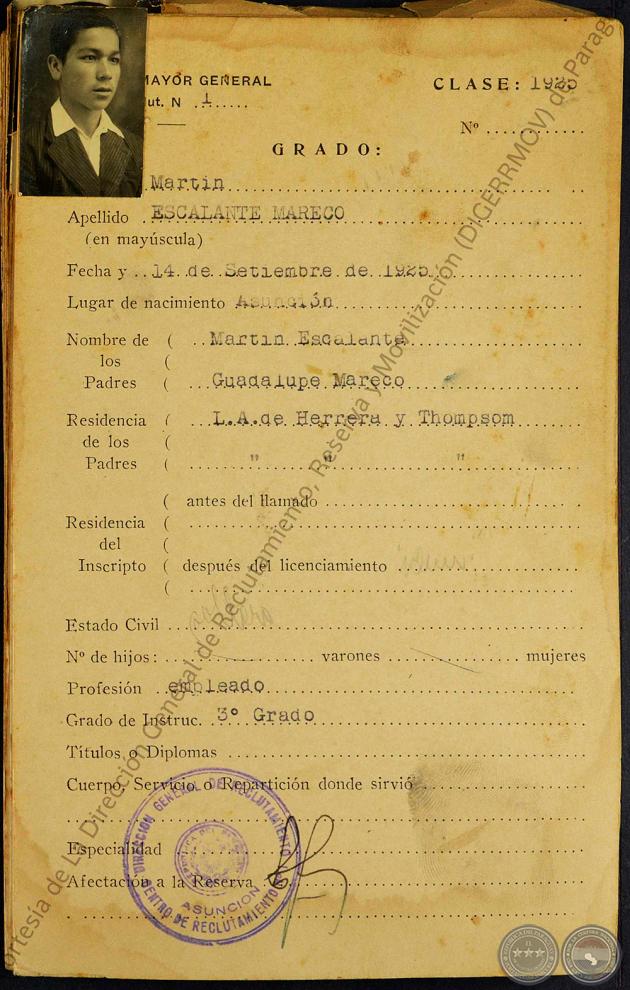 MAYOR GENERAL
CLASE: 1925
ut. N 1
Nº
GRADO:
Martin
Apellido ESCALANTE MARECO
(en mayúscula)
Fecha y 14 de Setiembre de 1925
Lugar de nacimiento Asunción
Nombre de ( Martin Escalante
los (
Padres ( Guadalupe Mareco
Residencia ( L.A.de Herrera y Thompsom
de los (
Padres ( " " "
( antes del llamado
Residencia (
del (
Inscripto ( después del licenciamiento
(
Estado Civil
Nº de hijos: varones mujeres
Profesión empleado
Grado de Instruc. 3º Grado
Títulos o Diplomas
Cuerpo, Servicio o Repartición donde sirvió
Especialidad
Afectación a la Reserva
DIRECCION GENERAL DE RECLUTAMIENTO
CENTRO DE RECLUTAMIENTO
ASUNCION
ortesia de La Dirección General de Reclutamiento, Reserva y Movilización (DIGERRMOV) de Parag